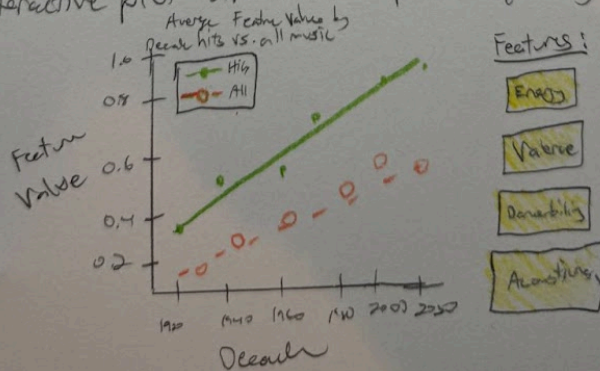 Average Feature Value by
Decade hits vs. all music
Hits
All
Feature
Value
1.0
0.8
0.6
0.4
0.2
1920
1940
1960
1980
2000
2020
Decade
Features:
Energy
Valence